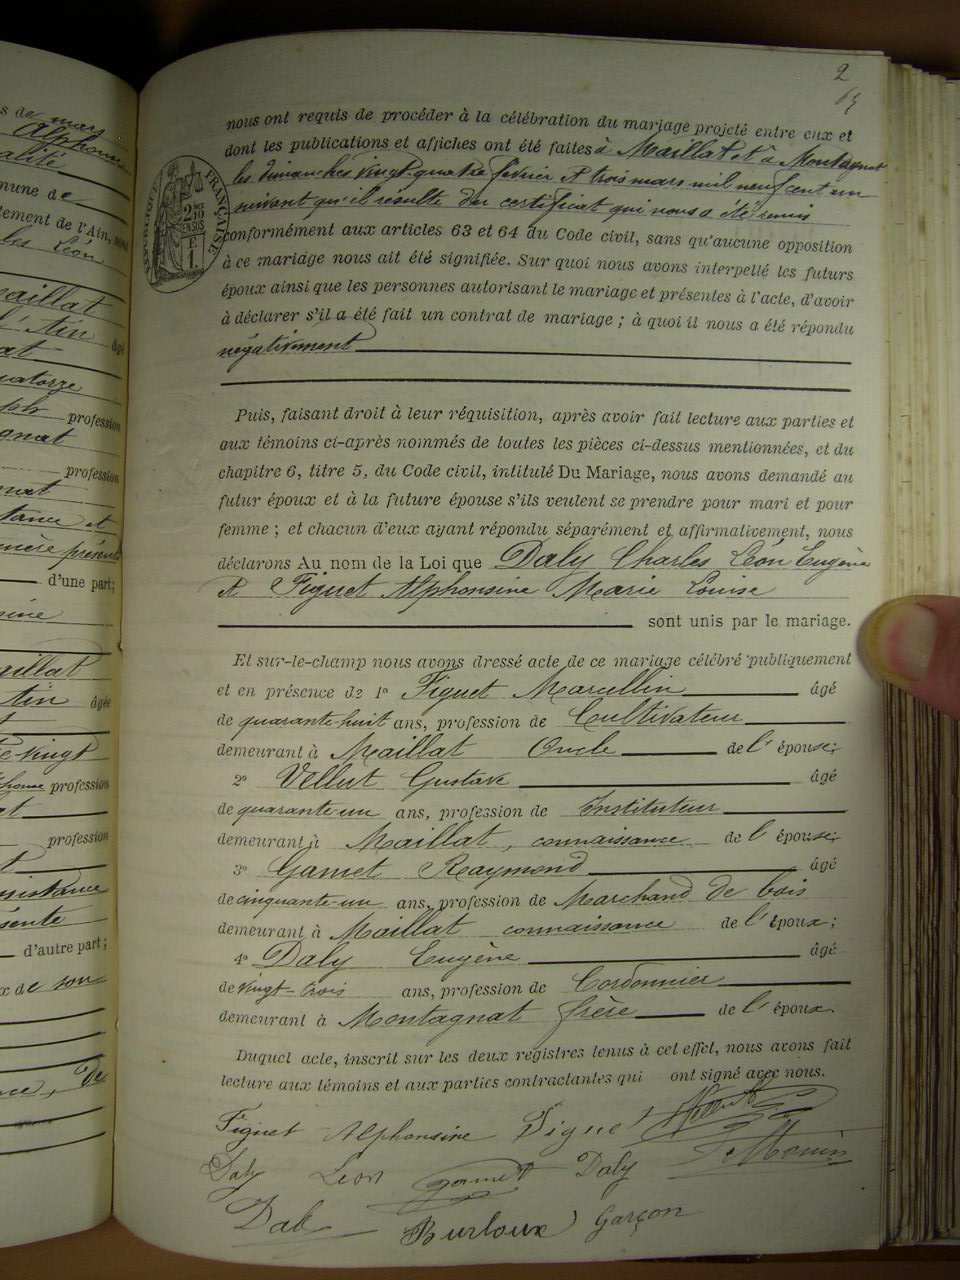 s de mars
Alphonse
alité
mune de
tement de l'Ain,
les Léon
aillat
l'Ain
at âgé
uatorze
ph profession
gnat
profession
nat
tance et
mère présente
d'une part;
sine
aillat
tin âgée
t
e-vingt
profession
at
profession
t
nsistance
ésente
d'autre part;
x de son
nce, de
2
RÉPUBLIQUE FRANÇAISE
2 10
nous ont requis de procéder à la célébration du mariage projeté entre eux et
dont les publications et affiches ont été faites à Maillat et à Montagnat
les dimanches vingt quatre février et trois mars mil neuf cent un
suivant qu'il résulte du certificat qui nous a été remis
conformément aux articles 63 et 64 du Code civil, sans qu'aucune opposition
à ce mariage nous ait été signifiée. Sur quoi nous avons interpellé les futurs
époux ainsi que les personnes autorisant le mariage et présentes à l'acte, d'avoir
à déclarer s'il a été fait un contrat de mariage ; à quoi il nous a été répondu
négativement
Puis, faisant droit à leur réquisition, après avoir fait lecture aux parties et
aux témoins ci-après nommés de toutes les pièces ci-dessus mentionnées, et du
chapitre 6, titre 5, du Code civil, intitulé Du Mariage, nous avons demandé au
futur époux et à la future épouse s'ils veulent se prendre pour mari et pour
femme ; et chacun d'eux ayant répondu séparément et affirmativement, nous
déclarons Au nom de la Loi que Daly Charles Léon Eugène
et Figuet Alphonsine Marie Louise
sont unis par le mariage.
Et sur-le-champ nous avons dressé acte de ce mariage célébré publiquement
et en présence de 1º Figuet Marcellin âgé
de quarante-huit ans, profession de Cultivateur
demeurant à Maillat Oncle de l'épouse;
2º Vellut Gustave âgé
de quarante-un ans, profession de Instituteur
demeurant à Maillat, connaissance de l'épouse;
3º Gamet Raymond âgé
de cinquante-un ans, profession de Marchand de bois
demeurant à Maillat connaissance de l'époux;
4º Daly Eugène âgé
de vingt-trois ans, profession de Cordonnier
demeurant à Montagnat frère de l'époux.
Duquel acte, inscrit sur les deux registres tenus à cet effet, nous avons fait
lecture aux témoins et aux parties contractantes qui ont signé avec nous.
Figuet Alphonsine Figuet
Daly Léon Gamet Daly Monin
Daly Burloux Garçon